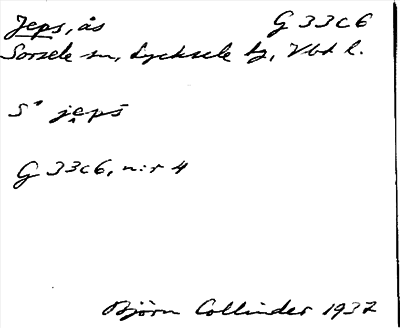 Jeps, ås G 33c6
Sorsele sn, Lycksele tg, Vbt l.
S° jepš
G 33c6, n:r 4
Björn Collinder 1937